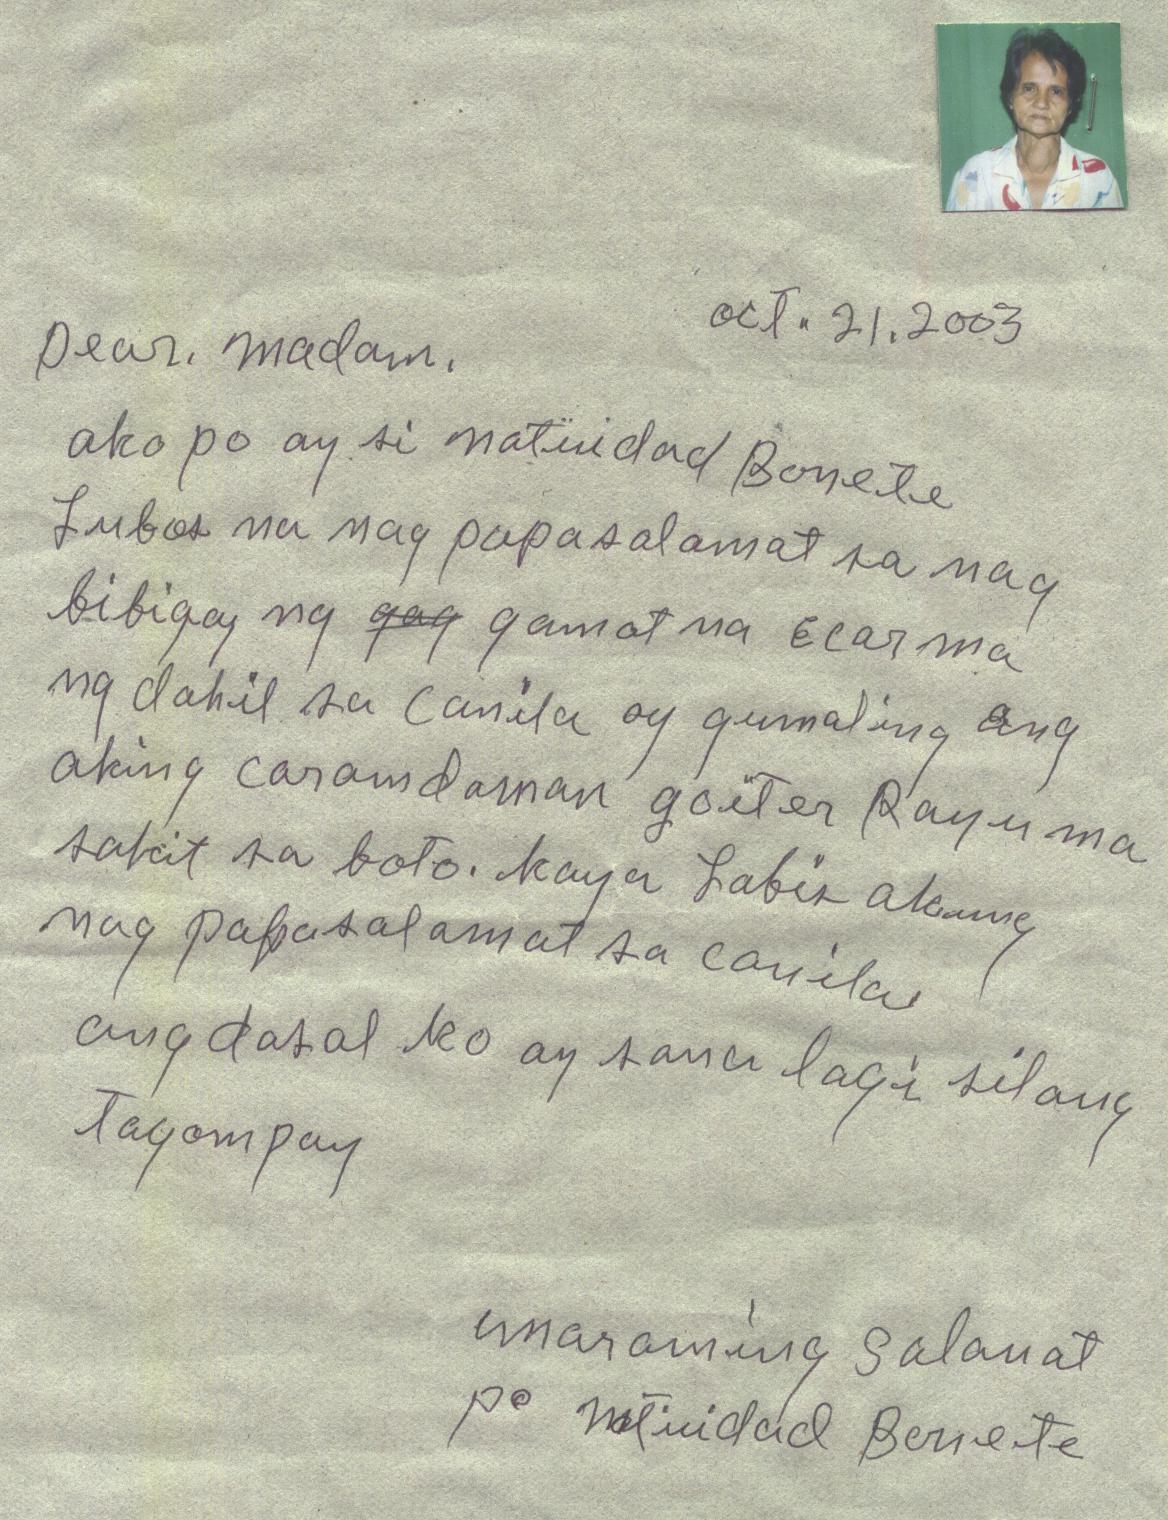 oct. 21. 2003
Dear. madam.
ako po ay si natividad Bonete
Lubos na nag papasalamat sa nag
bibigay ng gag gamot na Ecarma
ng dahil sa Canila ay gumaling ang
aking caramdaman goiter Rayuma
sakit sa boto. kaya Labis akung
nag papasalamat sa canila
ang dasal ko ay sana lagi silang
Tagompay
maraming Salamat
po natividad Bonete